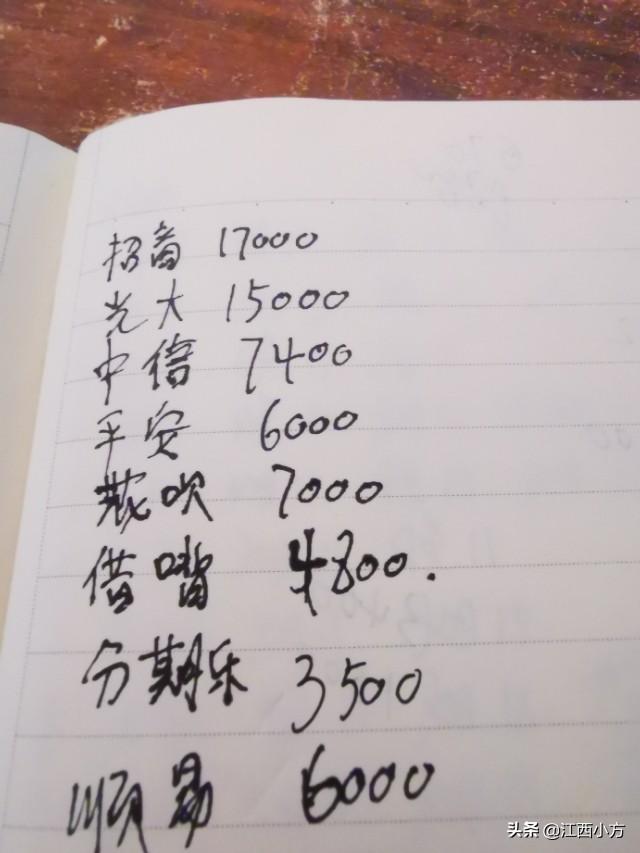 招商 17000
光大 15000
中信 7400
平安 6000
7000
借 4800.
分期乐 3500
顺易 6000
头条 @江西小方